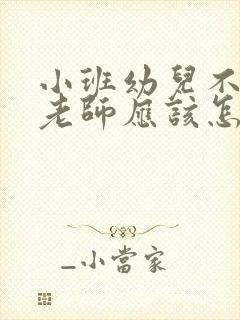 小班幼兒不
老師應該怎
_小當家